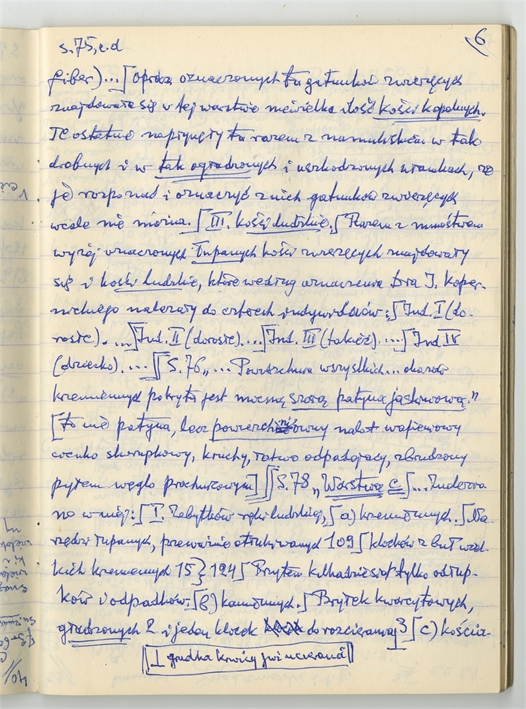 6
s. 75, c.d
fiber)... [Oprócz oznaczonych tu gatunków zwierzęcych
znajdowała się w tej warstwie niewielka ilość kości kopalnych.
Te ostatnie napłynęły tu razem z namuliskiem w tak
drobnych i w tak ogładzonych i uszkodzonych ułamkach, że
je rozpoznać i oznaczyć z nich gatunków zwierzęcych
wcale nie można. [III. kości ludzkie. [Razem z mnóstwem
wyżej oznaczonych łupanych kości zwierzęcych znajdowały
się i kości ludzkie, które według oznaczenia Dra I. Koper-
nickiego należały do czterech indywiduów: [Ind. I (do-
rosłe). ... [Ind. II (dorosłe)... [Ind. III (takież)... [Ind IV
(dziecko).... [[S. 76 „... Powierzchnia wszystkich... okazów
krzemiennych pokryta jest mocną szarą patyną jaskiniową."
[to nie patyna, lecz powierzchniowy nalot wapiennowy
cienko skorupkowy, kruchy, łatwo odpadający, zbrudzony
pyłem węglo prochnicowym] [[S. 78 „Warstwa C [... Znalezio
no w niej: [I. Zabytków ręki ludzkiej, [a) krzemiennych. [Na-
rzędzi łupanych, przeważnie otłukiwanych 109 [klocków z buł wiel-
kich krzemiennych 15 } 124 [Bryłek kilkadziesiąt tylko odłup-
ków i odpadków. [b) kamiennych. [Bryłek kwarcytowych,
gładzonych 2 i jeden klocek do rozcierania] 3 [c) kościa-
[1 grudka krwicy już ucierana]